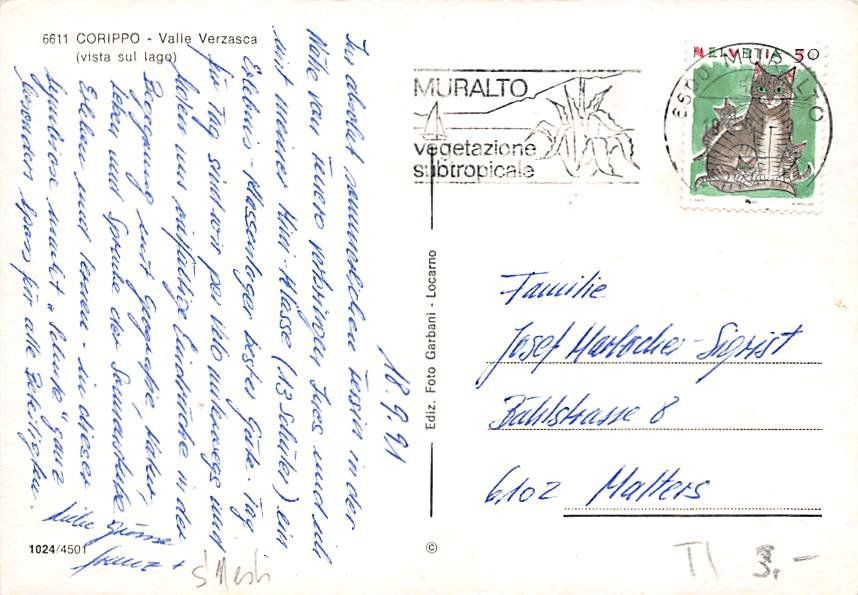 6611 CORIPPO - Valle Verzasca
(vista sul lago)
18.9.91
In der
Nähe von
mit meiner Mini-Klasse (13 Schüler) ein
Erlebnis-Klassenlager bester Güte. Tag
für Tag sind wir per Velo unterwegs und
holen uns Eindrücke in der
Begegnung mit Geografie, Natur,
Leben und Sprache der
Erleben und Lernen in dieser
Symbiose macht "Schule" ganz
besonders Spass für alle Beteiligten.
Liebe Grüsse
1024/4501
Ediz. Foto Garbani - Locarno
©
MURALTO
vegetazione
subtropicale
HELVETIA 50
6600 MURALTO
Familie
Josef Harlocher-Sigrist
Bählstrasse 8
6102 Malters
TI 3.-